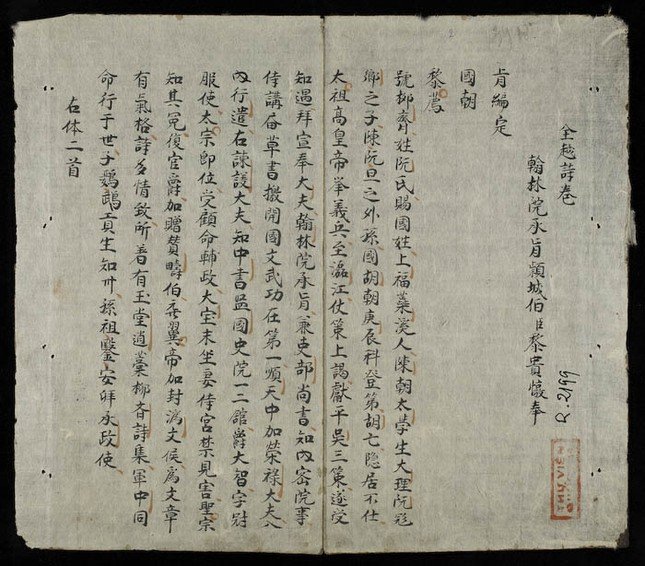 全越詩卷
翰林院承旨頴城伯臣黎貴惇奉
旨編定
國朝
黎廌
號抑齋姓阮氏賜國姓上福蕊溪人陳朝太學生大理阮飛
卿之子陳阮旦之外孫國胡朝庚辰科登第胡亡隐居不仕
太祖高皇帝举義兵至瀘江仗策上謁獻平吳三策遂受
知遇拜宣奉大夫翰林院承旨兼吏部尚書知內密院事
侍講草書檄開國文武功在第一順天中加榮禄大夫入
內行遣右諫議大夫知中書監國史院一二舘爵大智字尉
服使太宗即位受顧命輔政大宝末坐妾侍宮禁見害聖宗
知其冤復官爵加贈賛疇伯襄翼帝加封済文侯為文章
有氣格詩多情致所著有玉堂遺藁抑斉詩集軍中同
命行于世子鸚鵡貢生知州孫祖鑒安邦承政使
右体二首
Q.2199